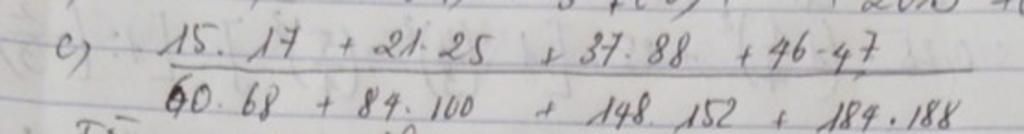 c) 15. 17 + 21. 25 + 37. 88 + 46-47
60. 68 + 84. 100 + 148. 152 + 184. 188